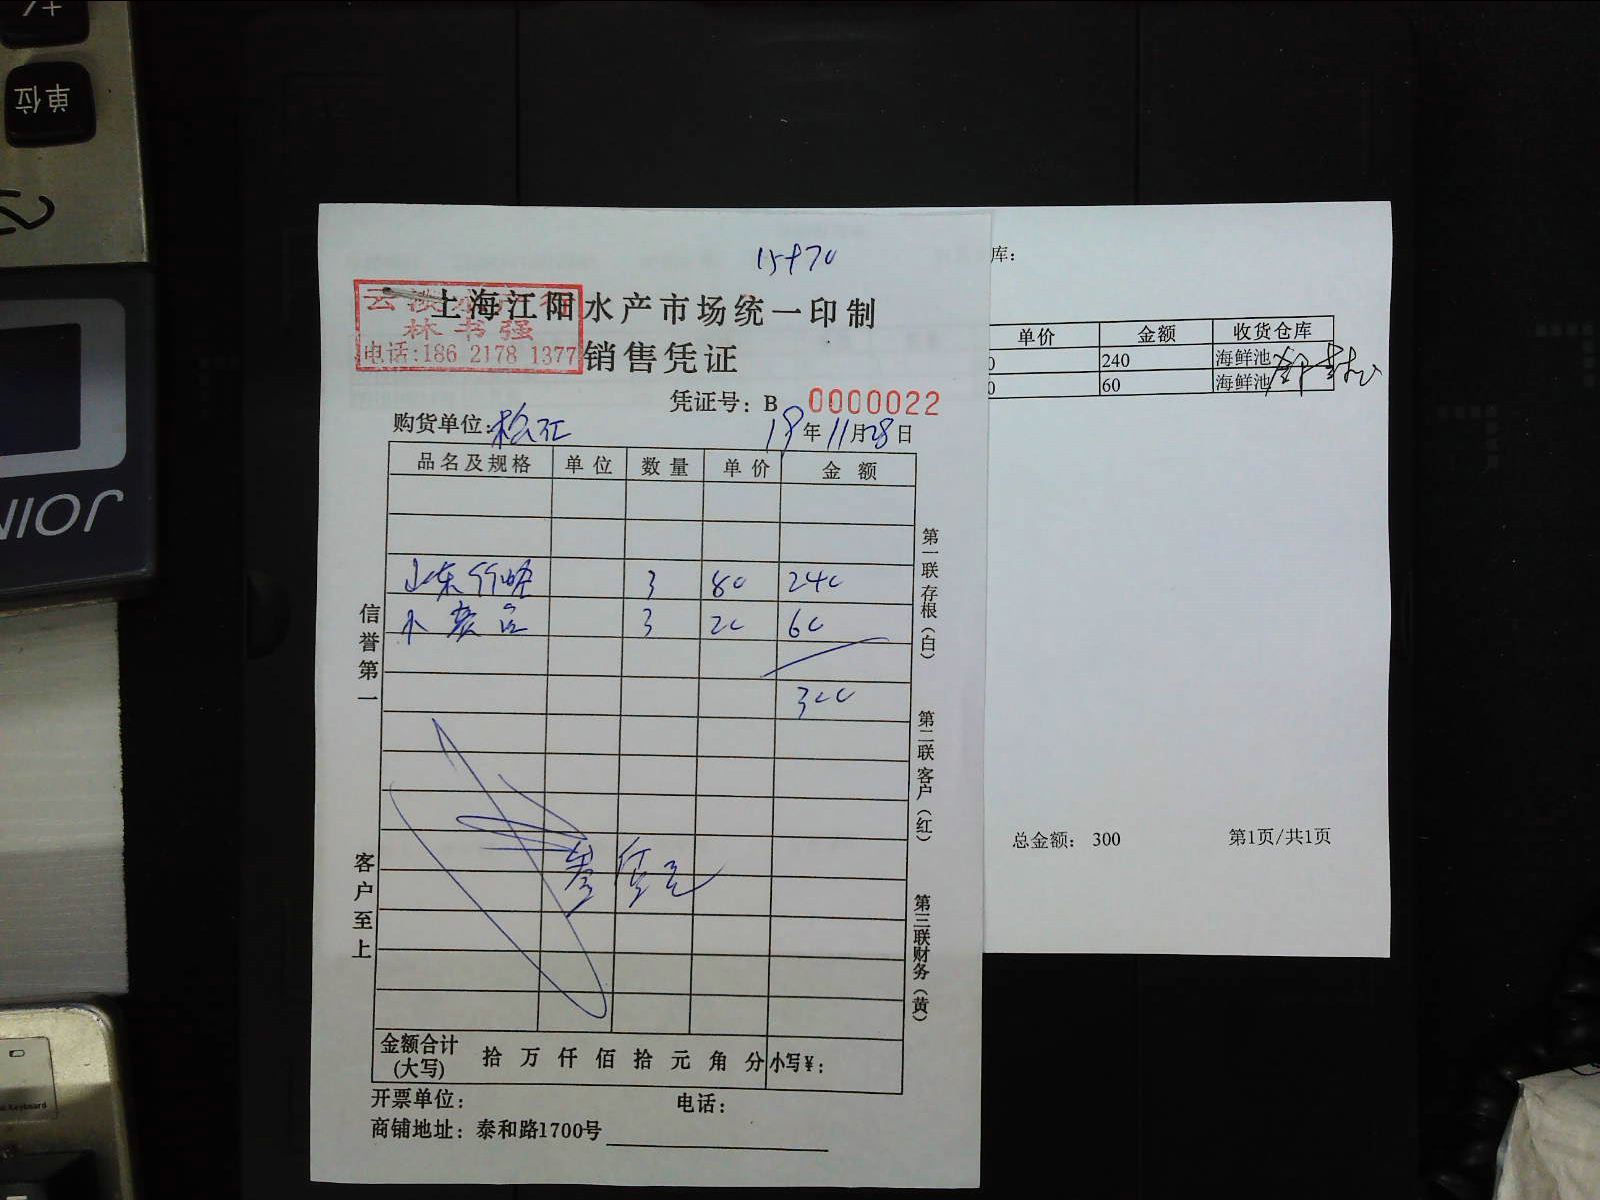 +/
单位
JOIN
15970
上海江阳水产市场统一印制
林书强
电话:186 2178 1377
销售凭证
凭证号: B 0000022
购货单位: 松江
19年11月28日
品名及规格 单位 数量 单价 金额
山东 3 80 240
3 20 60
300
信誉第一
客户至上
第一联存根(白)
第二联客户(红)
第三联财务(黄)
金额合计(大写) 拾 万 仟 佰 拾 元 角 分 小写¥:
开票单位: 电话:
商铺地址: 泰和路1700号
库:
单价 金额 收货仓库
0 240 海鲜池
0 60 海鲜池
总金额: 300 第1页/共1页
Keyboard